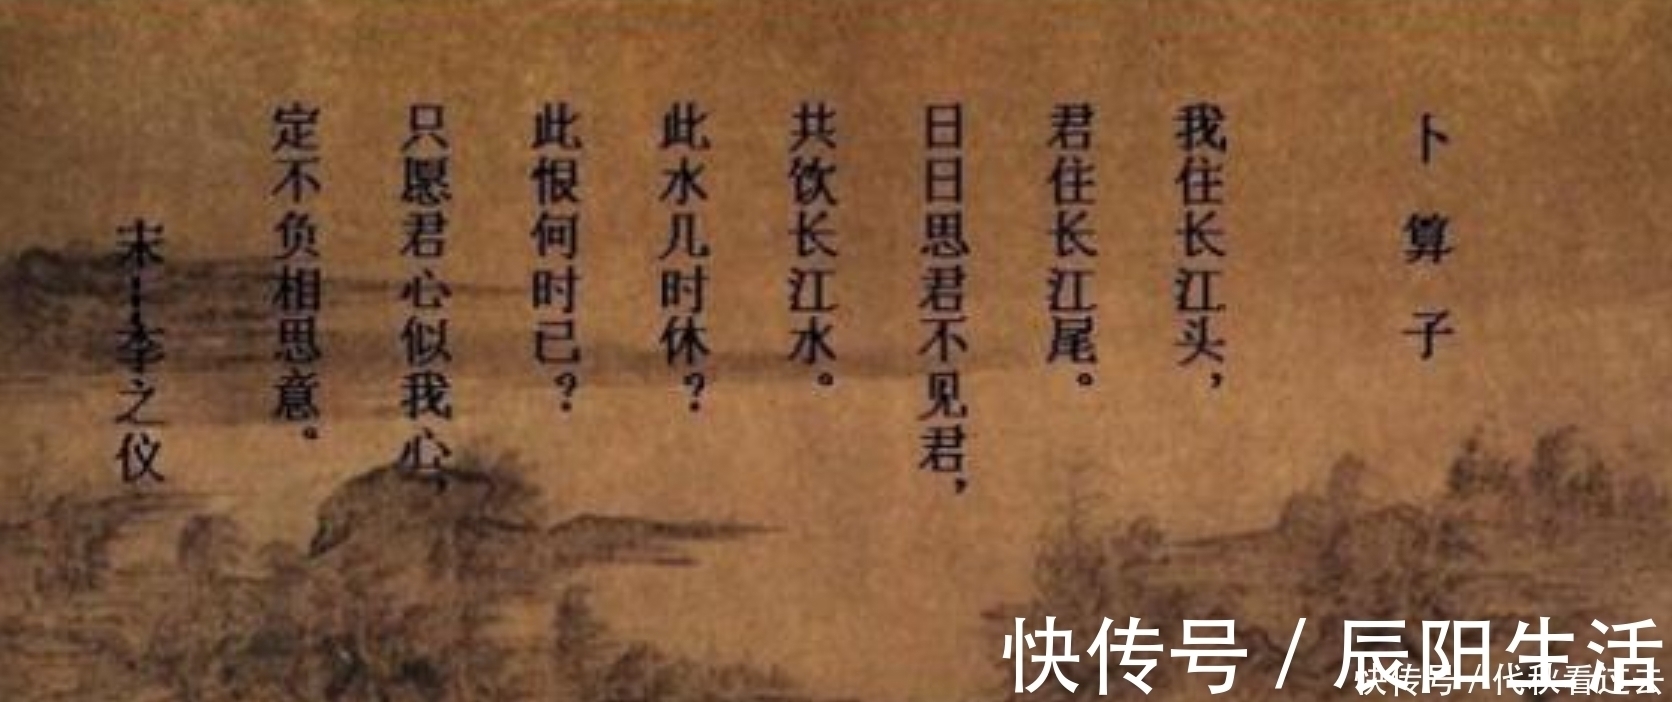 卜算子
我住长江头，
君住长江尾。
日日思君不见君，
共饮长江水。
此水几时休？
此恨何时已？
只愿君心似我心，
定不负相思意。
宋--李之仪
快传号/辰阳生活
快传号/代秋看过去